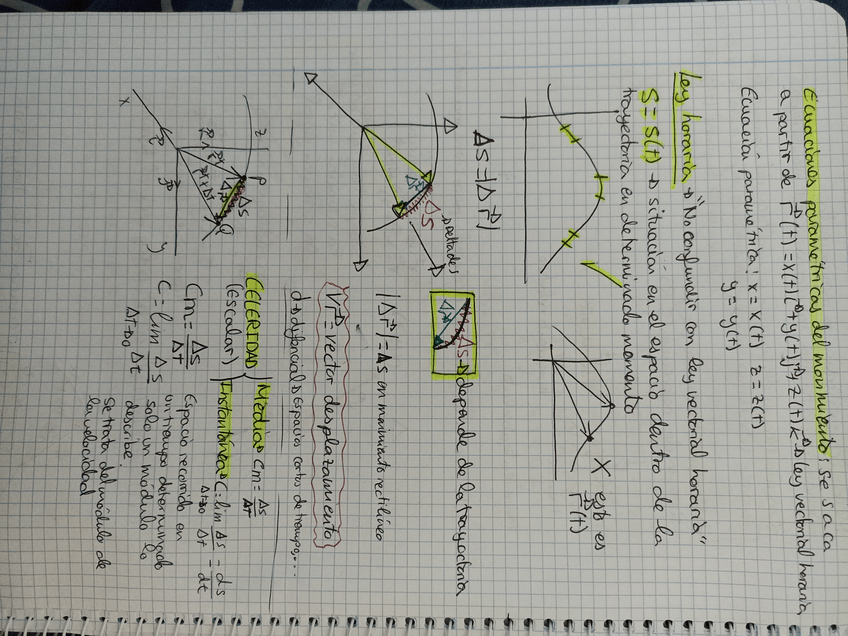 Ecuaciones paramétricas del movimiento: se saca
a partir de r(t) = x(t)i + y(t)j + z(t)k → ley vectorial horaria
Ecuación paramétrica: x = x(t) z = z(t)
y = y(t)
Ley horaria → "No confundir con ley vectorial horaria"
S = S(t) → situación en el espacio dentro de la
trayectoria en determinado momento
X esto es
r(t)
Δs = |Δr|
Δr
ΔS
Δr ΔS → depende de la trayectoria
|Δr| = Δs en movimiento rectilíneo
∇r = vector desplazamiento
d → diferencial → Espacios cortos de tiempo...
z
P
ΔS
Δr
Q
x
y
CELERIDAD
(Escalar)
Media → Cm = Δs/Δt
Instantánea → C = lim Δt→0 Δs/Δt = ds/dt
Cm = Δs/Δt
C = lim Δt→0 Δs/Δt
Espacio recorrido en
un tiempo determinado
solo un módulo lo
describe.
Se trata del módulo de
la velocidad